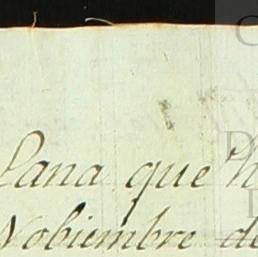 Lana que h
Nobiembre de